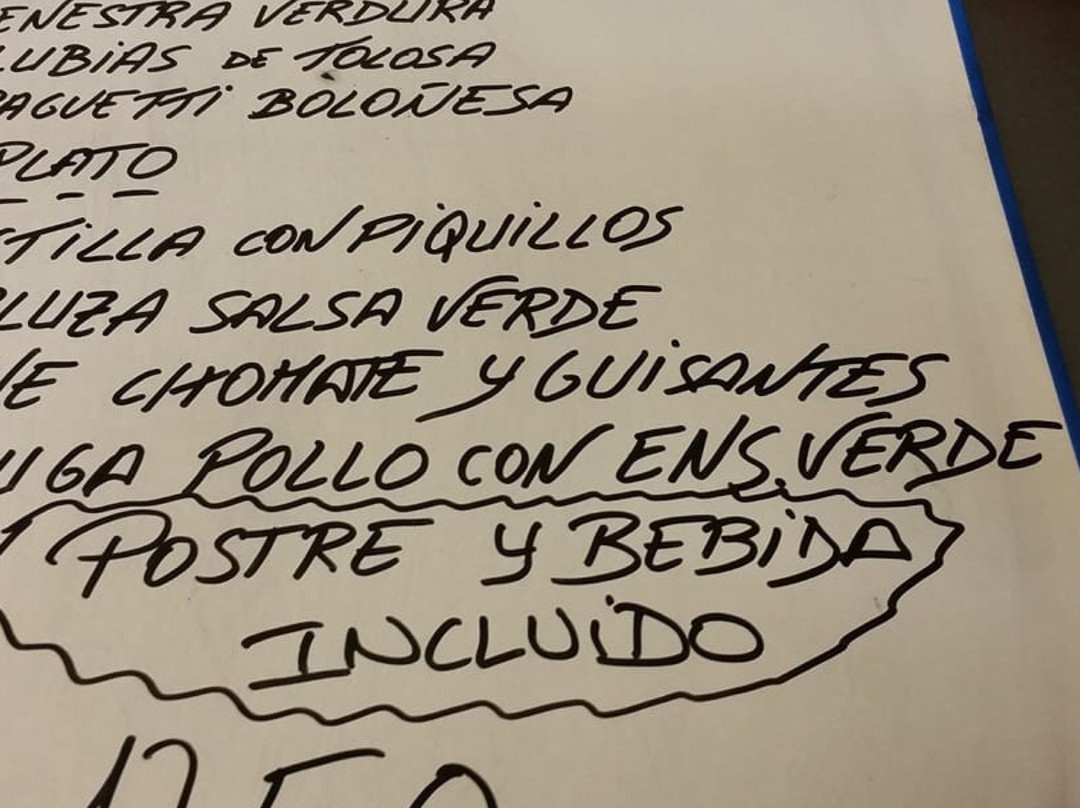 ENESTRA VERDURA
LUBIAS DE TOLOSA
PAGUETTI BOLOÑESA
PLATO
STILLA CON PIQUILLOS
LUZA SALSA VERDE
NE CHOMATE Y GUISANTES
UGA POLLO CON ENS. VERDE
POSTRE Y BEBIDA
INCLUIDO